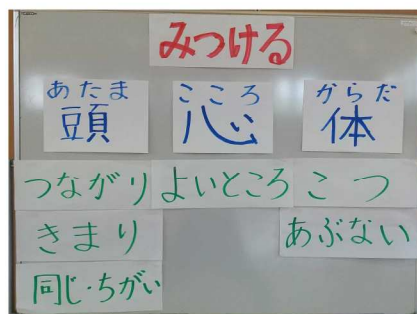 みつける
あたま こころ からだ
頭 心 体
つながり よいところ こつ
きまり あぶない
同じ・ちがい